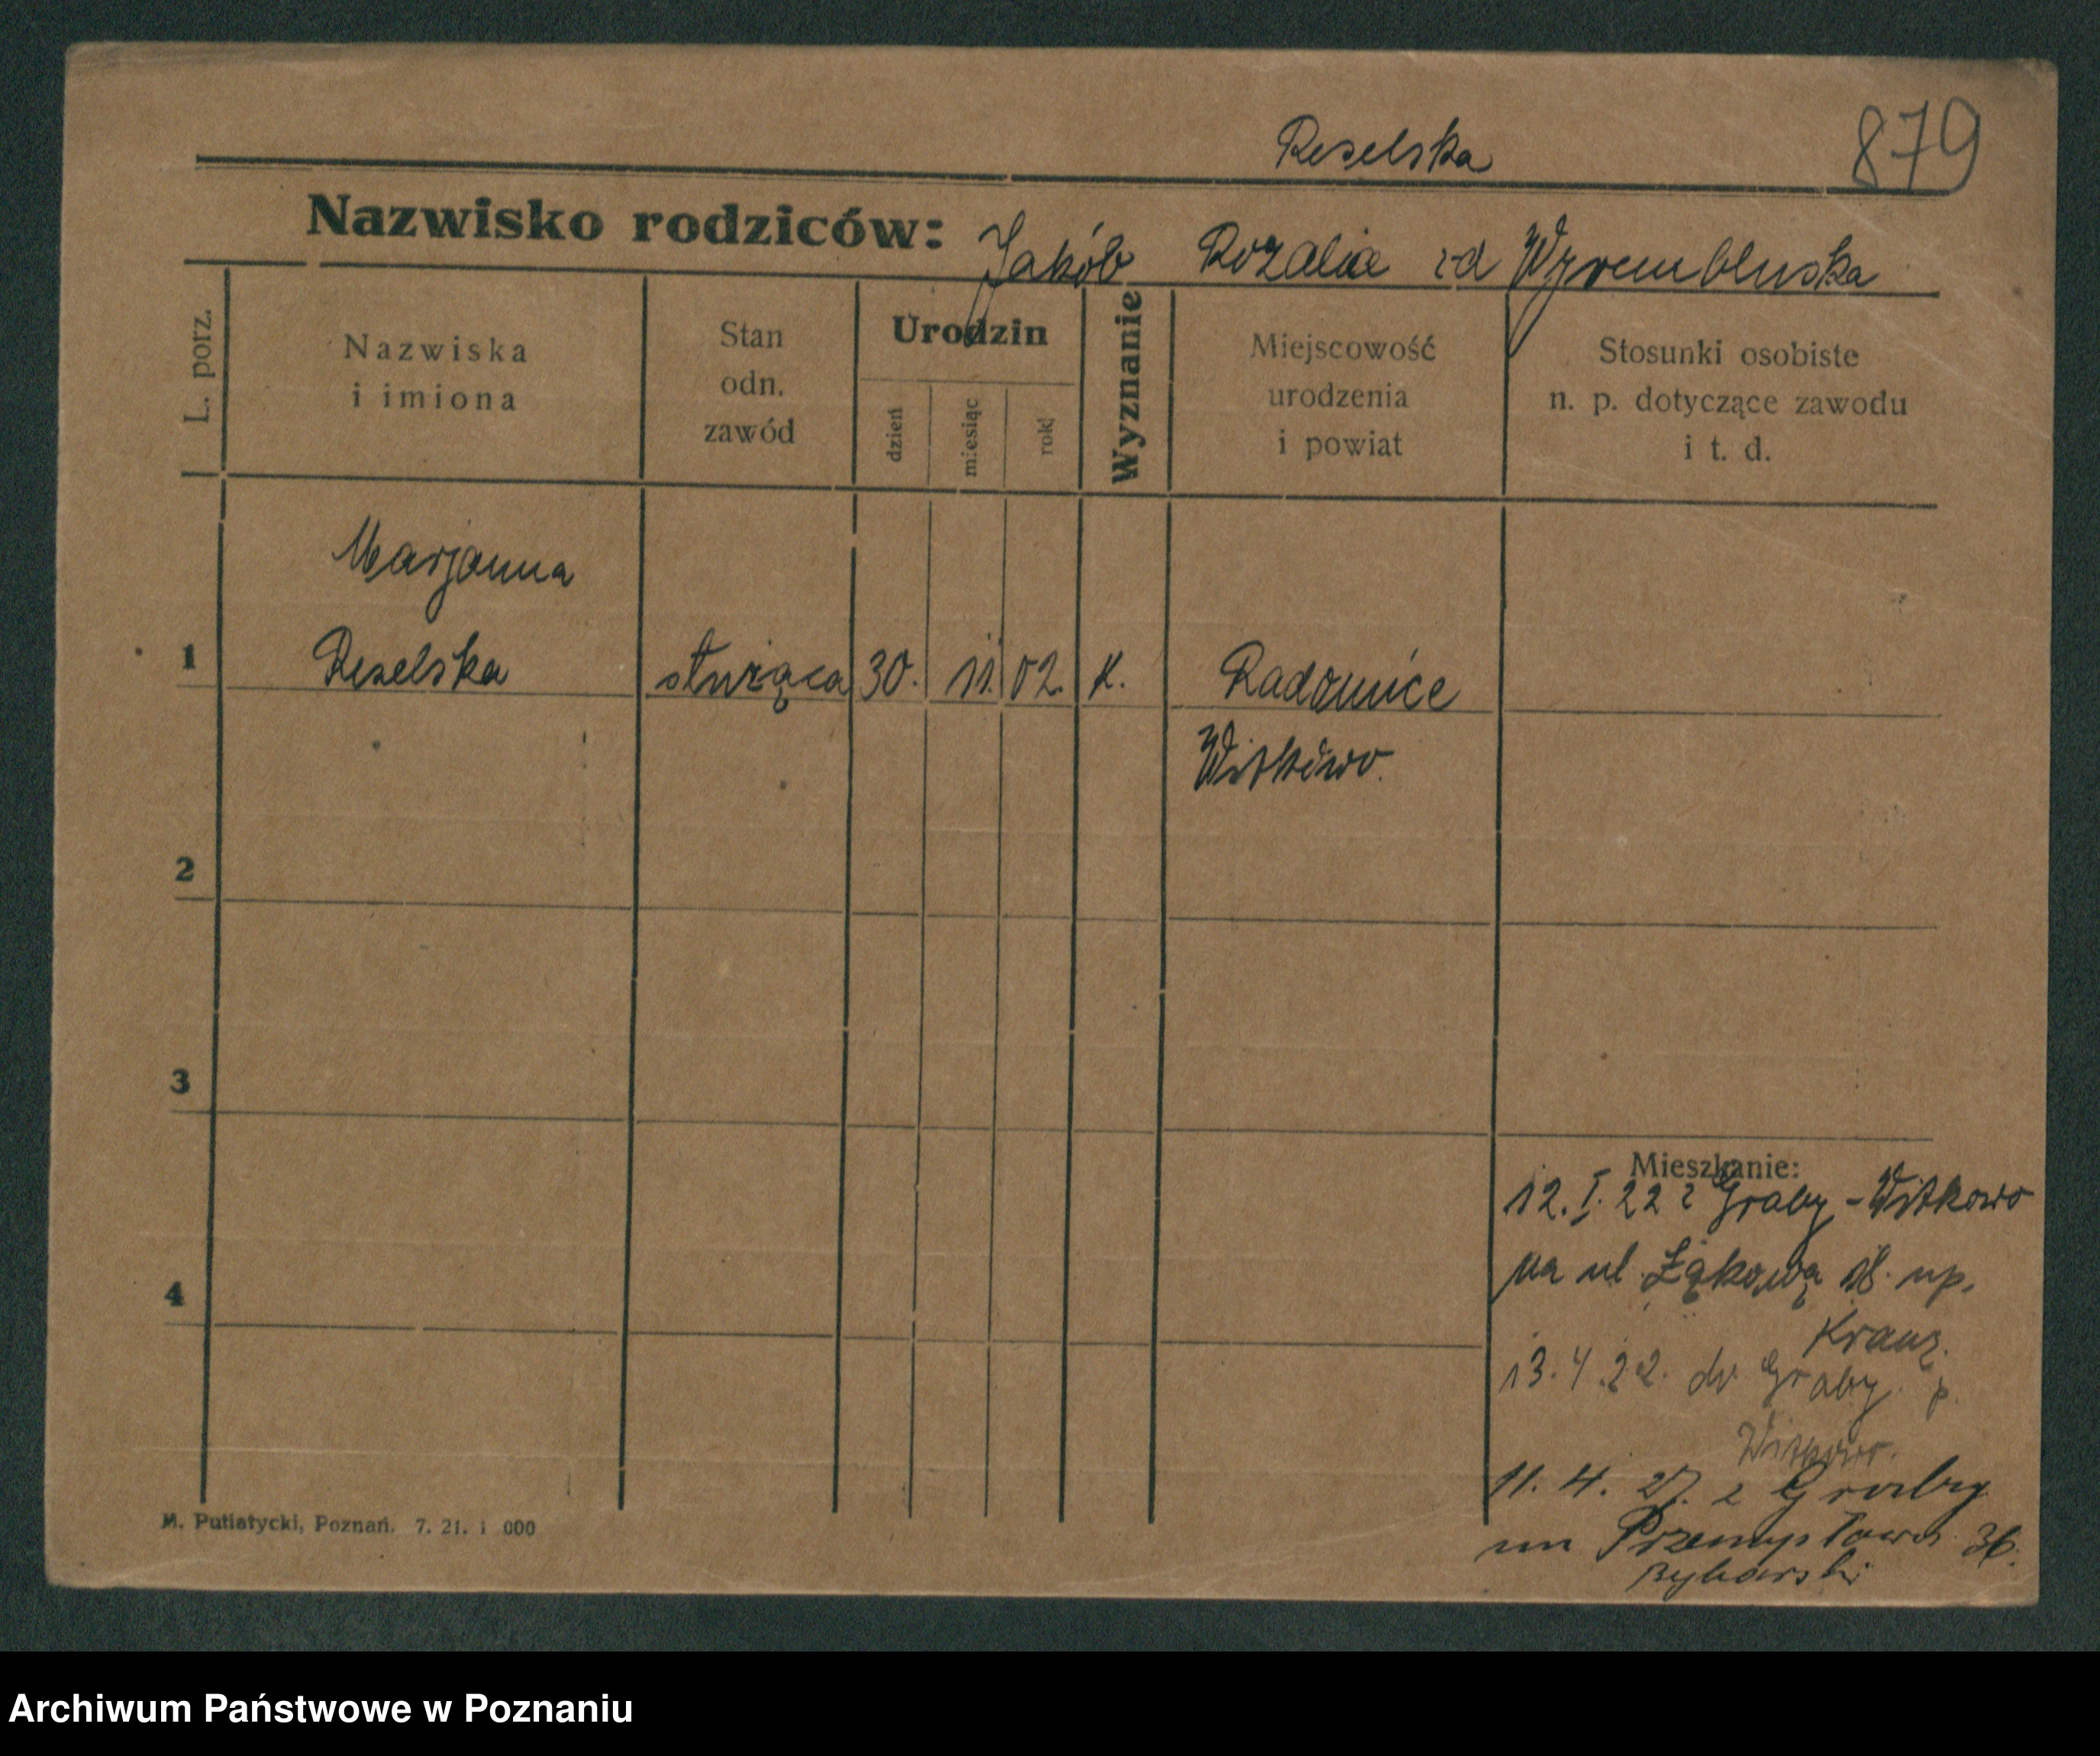 Reselska
879
Nazwisko rodziców: Jakób Rozalia z d Wyrembluska
L. porz.
Nazwiska
i imiona
Stan
odn.
zawód
Urodzin
dzień
miesiąc
rok
Wyznanie
Miejscowość
urodzenia
i powiat
Stosunki osobiste
n. p. dotyczące zawodu
i t. d.
Marjanna
1 Reselska służąca 30. 11. 02. K. Radomice
Witkówo.
2
3
4
Mieszkanie:
12. I. 22 z Graby - Witkowo
na ul Łąkową np.
13. 4. 22. do Graby p.
Witkowo.
11. 4. 27. z Graby
na Przemysłowa 36.
Rybarski
M. Putiatycki, Poznań. 7. 21. 1 000
Archiwum Państwowe w Poznaniu